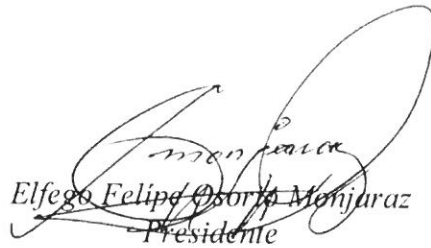 Elfego Felipe Osorio Monjaraz
Presidente